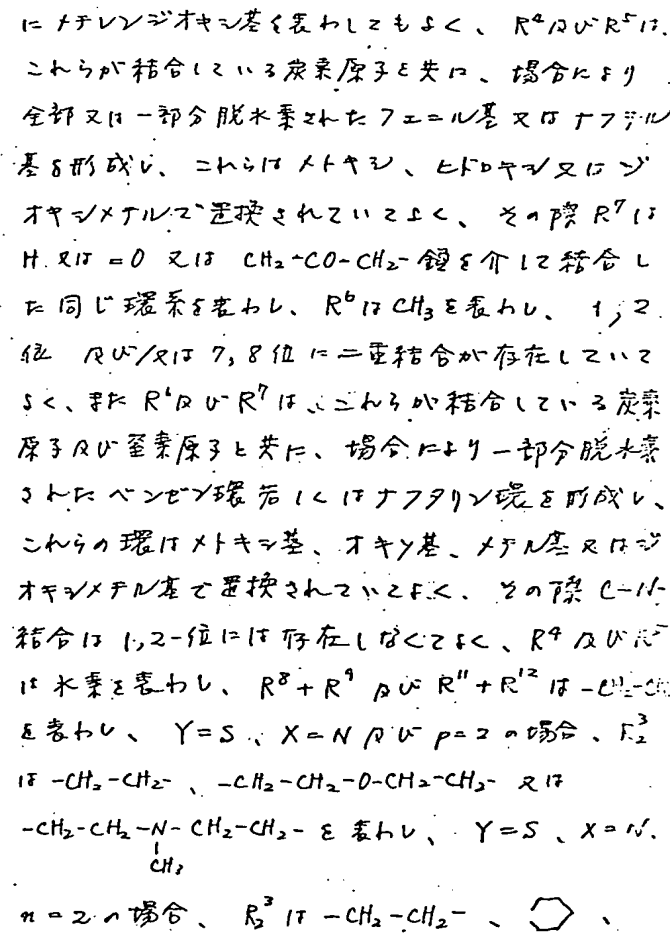 にメチレンジオキシ基を表わしてもよく、R⁴及びR⁵は、
これらが結合している炭素原子と共に、場合により
全部又は一部分脱水素されたフェニル基又はナフチル
基を形成し、これらはメトキシ、ヒドロキシ又はジ
オキシメチルで置換されていてよく、その際R⁷は
H又は=O又はCH₂-CO-CH₂-鎖を介して結合し
た同じ環系を表わし、R⁶はCH₃を表わし、1,2
位 及び/又は7,8位に二重結合が存在していて
よく、またR⁶及びR⁷は、これらが結合している炭素
原子及び窒素原子と共に、場合により一部分脱水素
されたベンゼン環若しくはナフタリン環を形成し、
これらの環はメトキシ基、オキソ基、メチル基又はジ
オキシメチル基で置換されていてよく、その際C-N-
結合は1,2-位には存在しなくてよく、R⁴及びR⁵
は水素を表わし、R⁸+R⁹及びR¹¹+R¹²は-CH₂-CH₂
を表わし、Y=S、X=N及びp=2の場合、R₂³
は-CH₂-CH₂-、-CH₂-CH₂-O-CH₂-CH₂-又は
-CH₂-CH₂-N-CH₂-CH₂-を表わし、Y=S、X=N、
CH₃
n=2の場合、R₂³は-CH₂-CH₂-、、